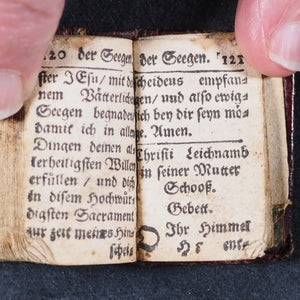 120 der Seegen.
ster JEsu / mit de
nem Vätterlichen
Seegen begnade,
damit ich in allen
Dingen deinen al-
lerheiligsten Willen
erfüllen / und diß
in disem Hochwür-
digsten Sacrament
zur zeit meines Hin-
schei-
der Seegen. 121
scheidens empfan-
gen / und also ewig-
lich bey dir seyn mö-
ge. Amen.
Christi Leichnamb
in seiner Mutter
Schooß.
Gebett.
O Ihr Himmel
ens-